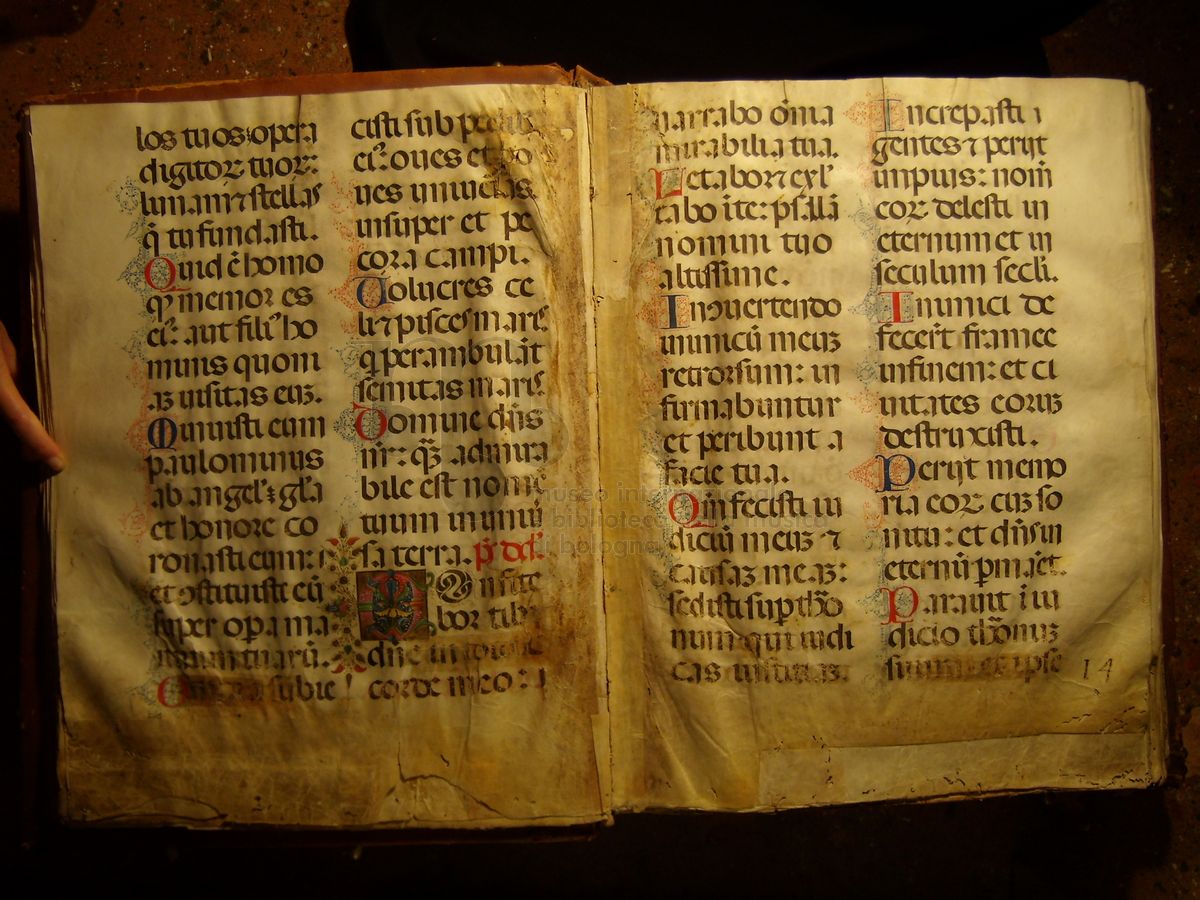 los tuos: opera
digitoꝝ tuoꝝ:
lunam ⁊ stellas
q̄ tu fundasti.
Quid ē homo
qꝫ memor es
ei: aut fili' ho
minis quoni
aꝫ uisitas euꝫ.
Minuisti eum
paulominus
ab angel': gl̄a
et honore co
ronasti eum:
et ↄstituisti eū
super opa ma
nuum tuarū.
Omnia subie
cisti sub pedib
ei: oues et bo
ues uniuersas
insuper et pe
cora campi.
Uolucres ce
li ⁊ pisces maris
q̄ perambulāt
semitas maris
Domine dn̄s
nr̄: qꝫ admira
bile est nomē
tuum in uniū
sa terra. ps̄ dd̄.
Onfite
bor tibi
dn̄e in toto
corde meo:
narrabo om̄ia
mirabilia tua.
Letabor ⁊ exl'
tabo ī te: psallā
nomini tuo
altissime.
In ↄuertendo
inimicū meuꝫ
retrorsum: in
firmabuntur
et peribunt a
facie tua.
Qm̄ fecisti iu
diciū meuꝫ ⁊
causaꝫ meaꝫ:
sedisti sup tho
num qui iudi
cas iustitiaꝫ.
Increpasti
gentes ⁊ perijt
impius: nom̄
eoꝝ delesti in
eternum et in
seculum secl'i.
Inimici de
fecerūt framee
in finem: et ci
uitates eoruꝫ
destruxisti.
Perijt memo
ria eoꝝ cuꝫ so
nitu: et dn̄s in
eternū pmaet.
Parauit ī iu
dicio thonuꝫ
suum: et ipse
14
museo internazionale
biblioteca della musica
di bologna